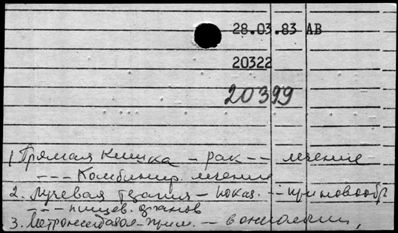 28.03.83 АВ
20322
20399
1. Прямая кишка - рак -- лечение
--- Комбинир. лечение
2. Лучевая терапия - показ. --
--- пищев. органов
3. Метронидазол - прим. -- в онкологии,